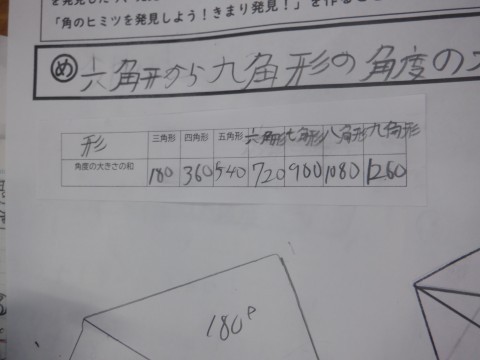 「角のヒミツを発見しよう!きまり発見!」を作るこ
め 六角形から九角形の角度の
形 三角形 四角形 五角形 六角形 七角形 八角形 九角形
角度の大きさの和 180 360 540 720 900 1080 1260
180°